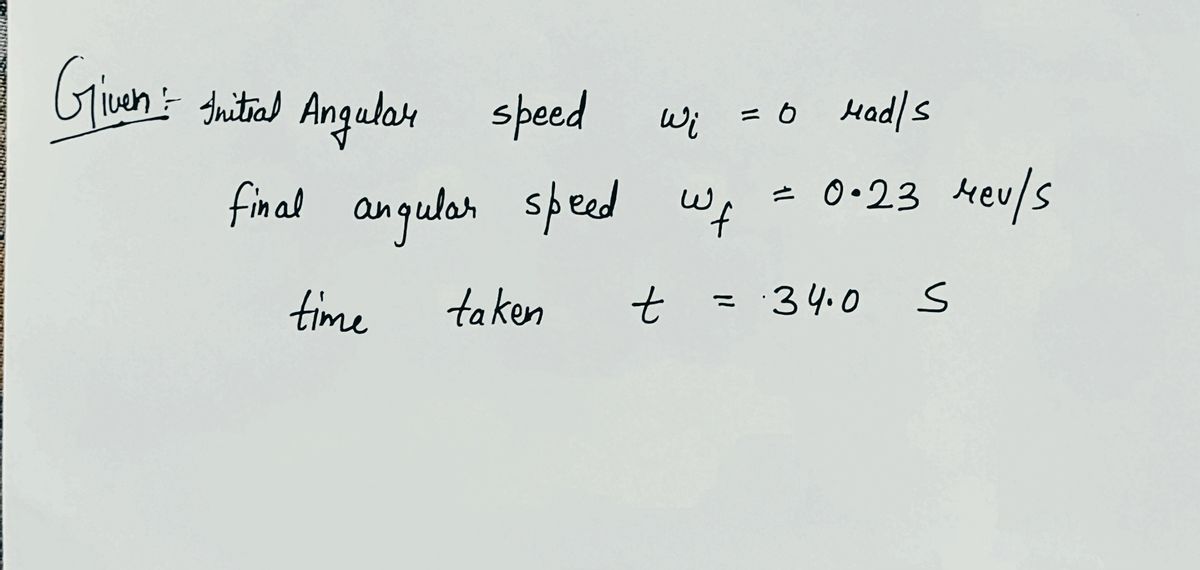 Given :- Initial Angular speed ωi = 0 rad/s
final angular speed ωf = 0.23 rev/s
time taken t = 34.0 s